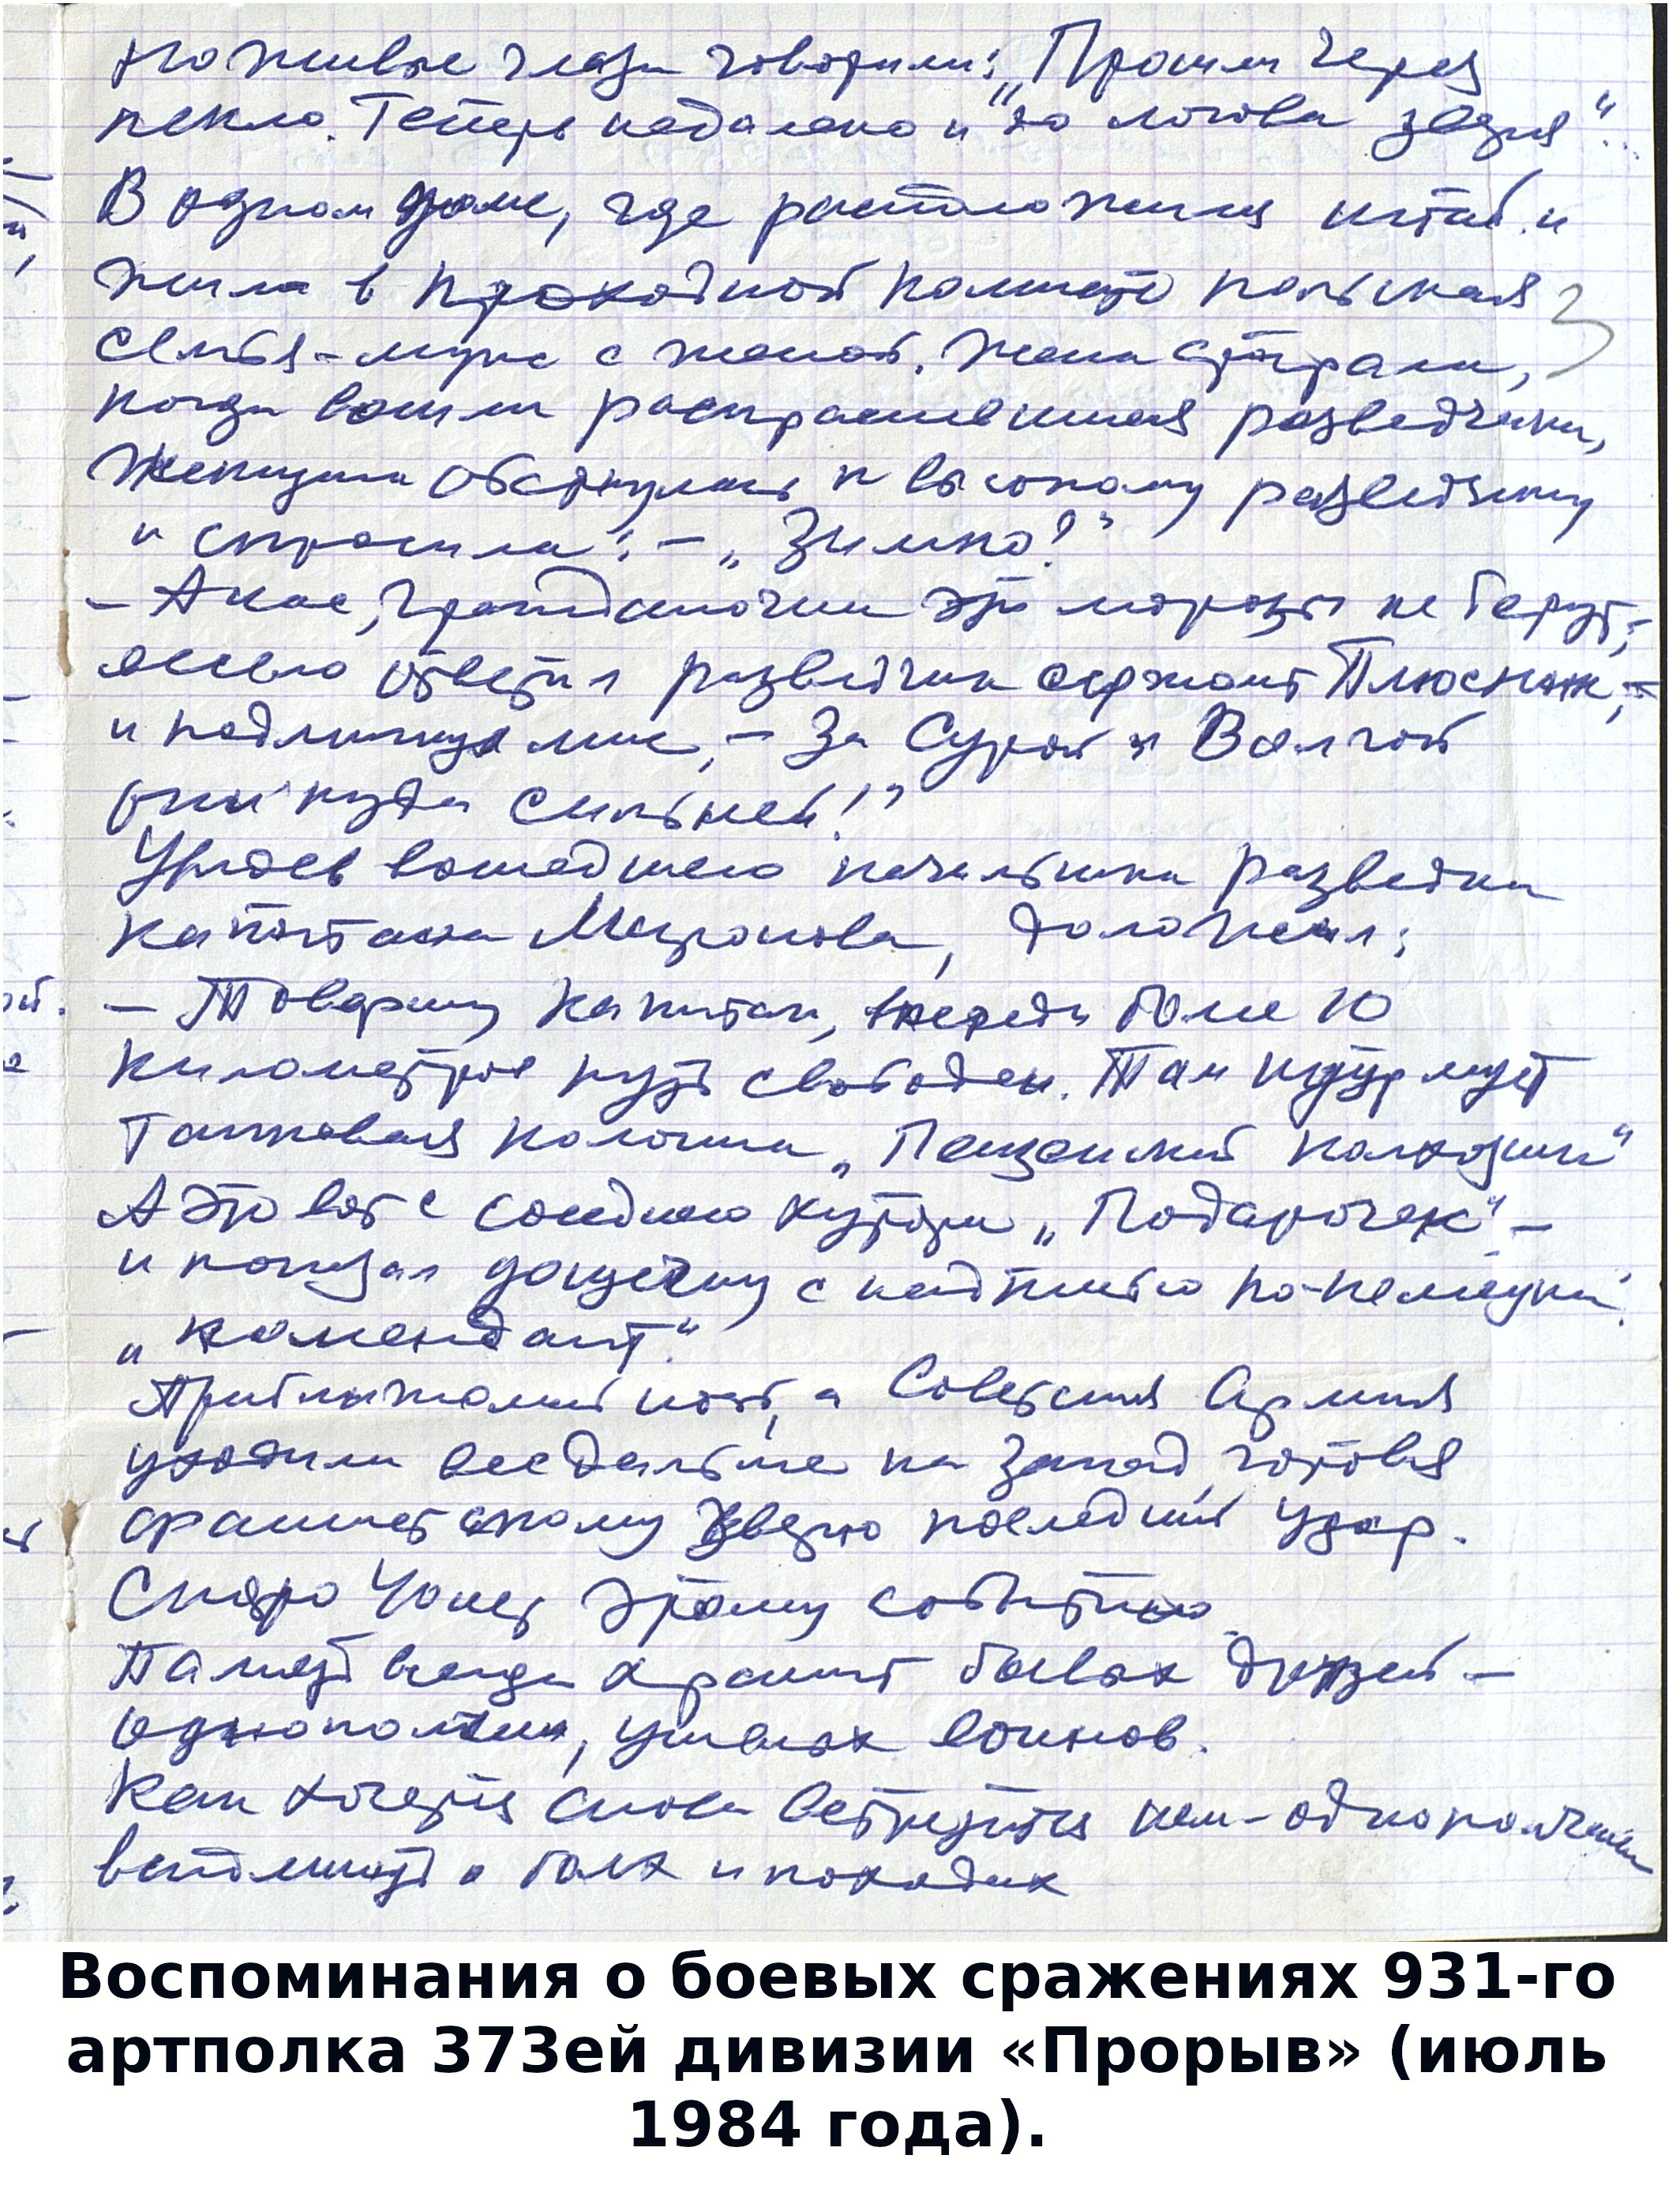 но живые глаза говорили: „Прошли через
пекло. Теперь недалеко и „до логова зверя“.
В одном доме, где расположился штаб и
жила в проходной комнате польская
семья - муж с женой. Жена стирала,
когда вошли раскрасневшиеся разведчики,
Женщина обернулась к высокому разведчику
и спросила: - „Зимно?“
- А нас, гражданочка эти морозы не берут, -
весело ответил разведчик сержант Плюснин, -
и подмигнул мне, - За Сурой и Волгой
они куда сильней!”
Увидев вошедшего начальника разведки
капитана Миронова, доложил:
- Товарищ капитан, впереди более 10
километров путь свободен. Там штурмует
танковая колонна „Пензенский колхозник“
А это вот с соседнего хутора „Подарочек“ -
и показал дощечку с надписью по-немецки:
„комендант“.
Приближалась ночь, а Советская Армия
уходила все дальше на запад, готовя
фашистскому зверю последний удар.
Скоро 40 лет этому событию.
Память всегда хранит боевых друзей -
однополчан, умелых воинов.
Как хочется снова встретиться нам - однополчанам
вспомнить о боях и походах
3
Воспоминания о боевых сражениях 931-го
артполка 373ей дивизии «Прорыв» (июль
1984 года).